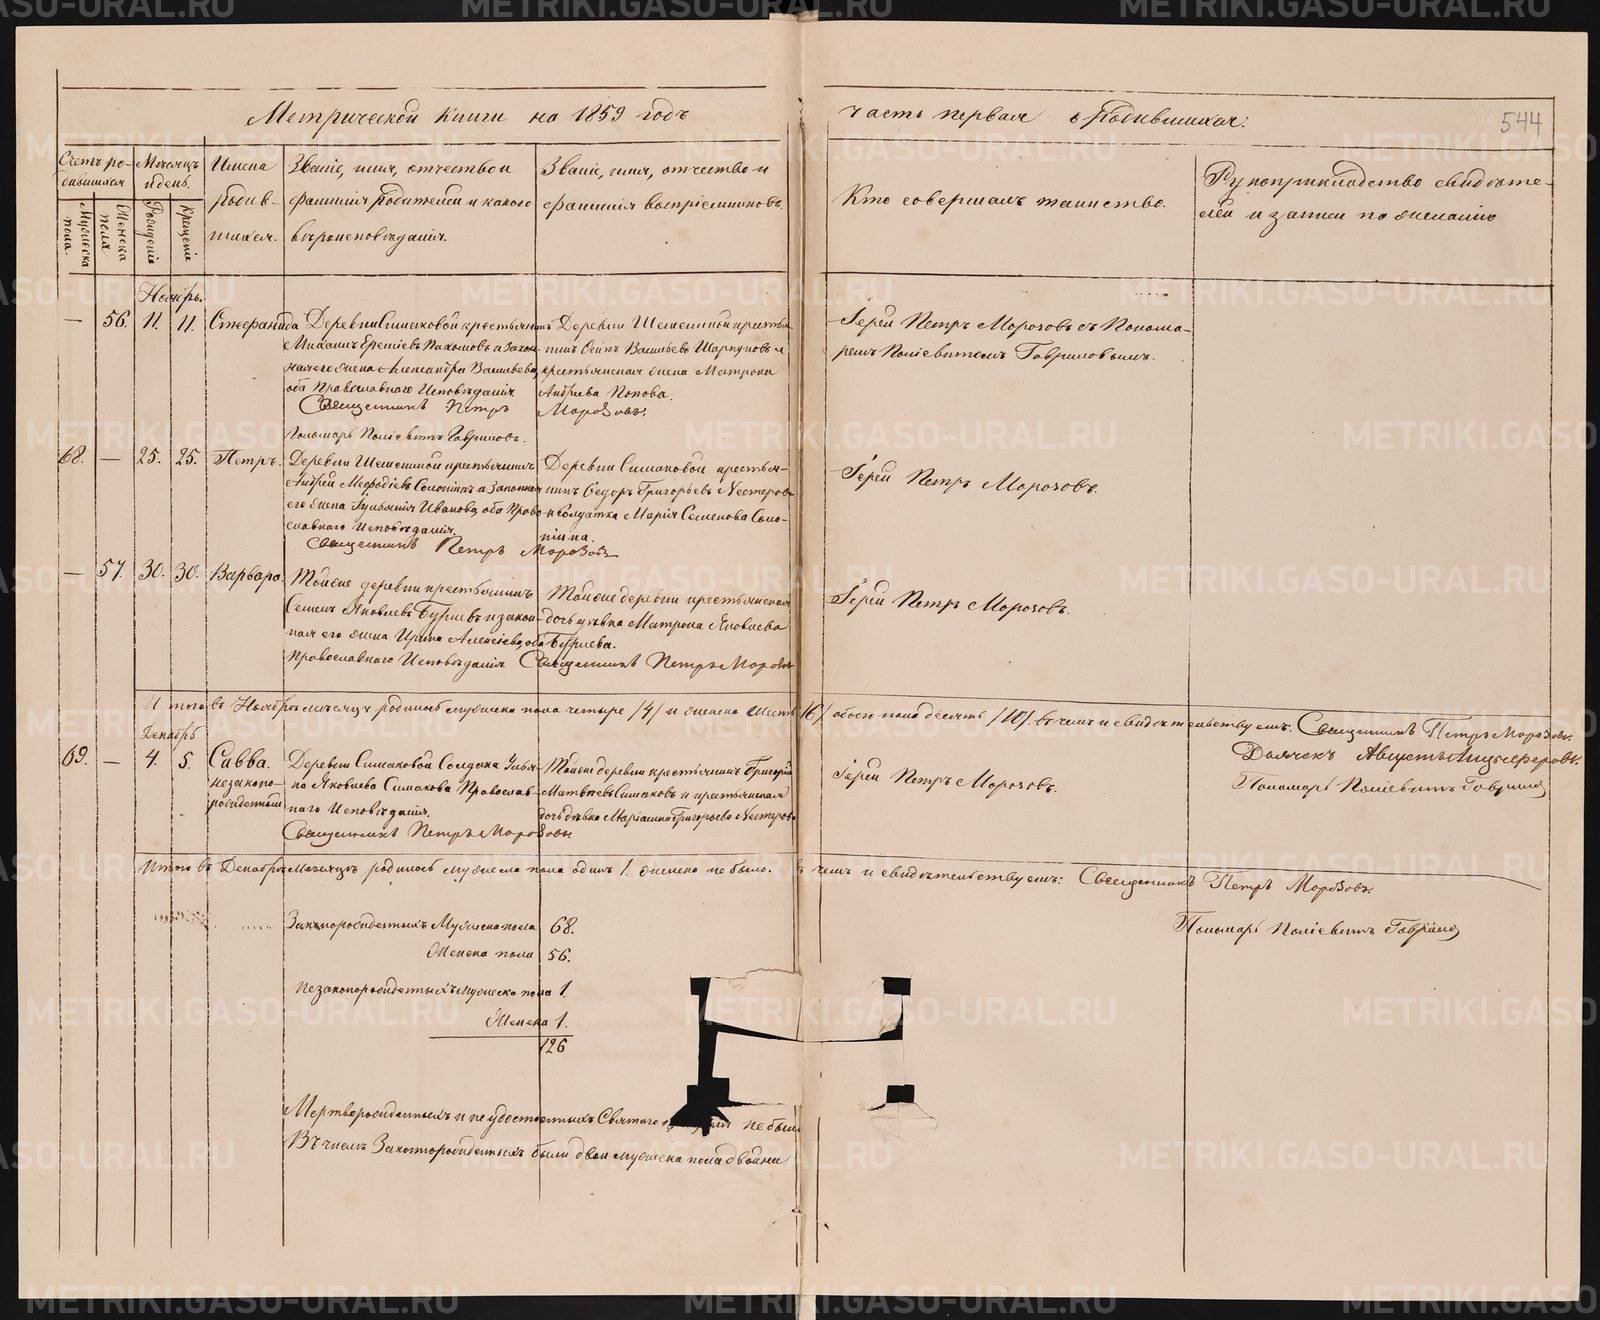 Метрической книги на 1859 годъ
часть первая о Родившихся:
544
Счетъ ро-
дившихся
Мужеска
пола.
Женска
пола
Мѣсяцъ
и день.
Рожденіе
Крещеніе
Имена
родив-
шихся.
Званіе, имя, отчество и
фамилія Родителей и какого
вѣроисповѣданія.
Званіе, имя, отчество и
фамилія воспріемниковъ.
Кто совершалъ таинство.
Рукоприкладство свидѣте-
лей и записи по желанію
Ноябрь.
— 56. 11. 11. Стефанида
Деревни Симаковой крестьянинъ
Михаилъ Пахомовъ и закон-
ная его жена Александра Васильева,
оба Православнаго Исповѣданія
Деревни крестья-
нинъ Осипъ Васильевъ и
крестьянская жена Матрона
Андреева Попова.
Священникъ Петръ Морозовъ.
Пономарь Гавриловъ.
Іерей Петръ Морозовъ съ Понома-
ремъ Гавриловымъ.
68. — 25. 25. Петръ.
Деревни крестьянинъ
Андрей Меѳодіевъ и Законная
его жена Иванова, оба Право-
славнаго Исповѣданія.
Деревни Симаковой крестья-
нинъ Ѳедоръ Григорьевъ Нестеровъ
и Солдатка Марія Семенова
Священникъ Петръ Морозовъ
Іерей Петръ Морозовъ.
— 57. 30. 30. Варвара.
Тойже деревни крестьянинъ
Семенъ Яковлевъ и закон-
ная его жена Ирина Алексіева, оба
Православнаго Исповѣданія
Тойже деревни крестьянская
дочь дѣвка Матрона Яковлева
Священникъ Петръ Морозовъ
Іерей Петръ Морозовъ.
Итого въ Ноябрѣ мѣсяцѣ родилось мужеска пола четыре /4/ и женска шесть /6/ обоего пола десять /10/. въ чемъ и свидѣтельствуемъ. Священникъ Петръ Морозовъ.
Дьячекъ Августъ
Пономарь Гавриловъ
Декабрь
69. — 4. 5. Савва.
незаконо-
рожденный
Деревни Симаковой Солдатка
на Яковлева Симакова Православ-
наго Исповѣданія.
Тойже деревни крестьянинъ Григорій
Матвѣевъ Симаковъ и крестьянская
дочь дѣвка Маріамна Григорьева Нестерова
Священникъ Петръ Морозовъ
Іерей Петръ Морозовъ.
Итого въ Декабрѣ мѣсяцѣ родилось мужеска пола одинъ 1. женска не было. въ чемъ и свидѣтельствуемъ: Священникъ Петръ Морозовъ.
Пономарь Гавриловъ
Законорожденныхъ Мужеска пола 68.
Женска пола 56.
Незаконорожденныхъ мужеска пола 1.
Женска 1.
126
Мертворожденныхъ и не удостоенныхъ Святаго не было
Въ числѣ Законнорожденныхъ были двои мужеска пола двойни
METRIKI.GASO-URAL.RU